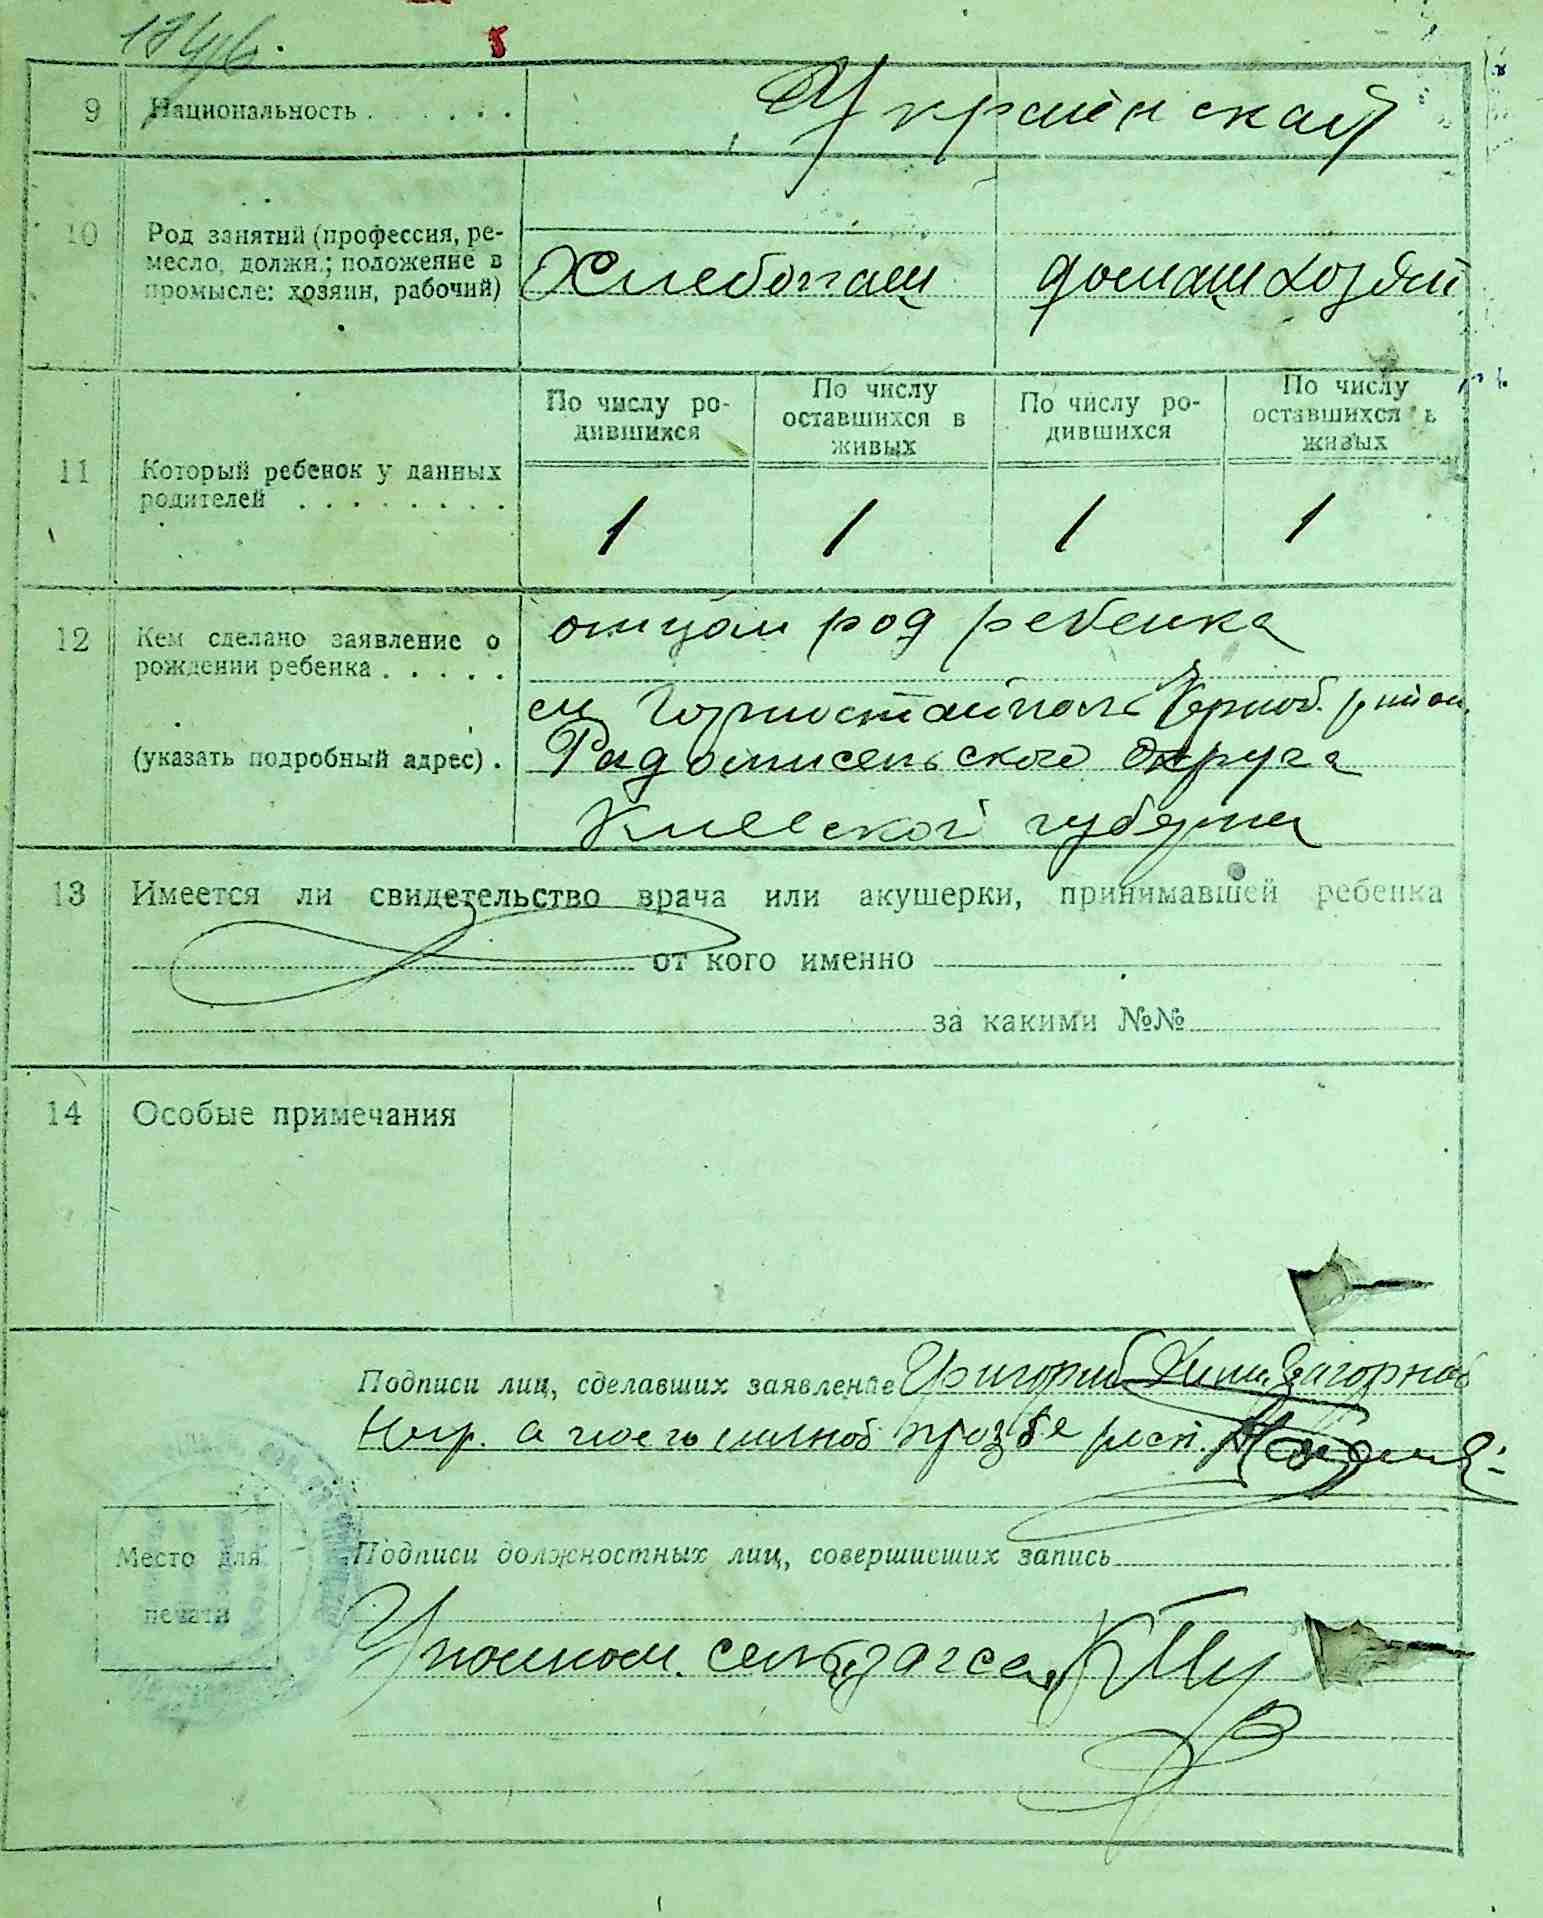 9 Национальность . . . . . . Украинская
10 Род занятий (профессия, ре-
месло, должн.; положение в
промысле: хозяин, рабочий)
Хлебопаш домаш хозяй
11 Который ребенок у данных
родителей . . . . . . . .
По числу ро-
дившихся
По числу
оставшихся в
живых
По числу ро-
дившихся
По числу
оставшихся в
живых
1 1 1 1
12 Кем сделано заявление о
рождении ребенка . . . . .
(указать подробный адрес) .
отцом род ребенка
м Горностайполь Черноб. район.
Радомисельского округа
Киевской губернии
13 Имеется ли свидетельство врача или акушерки, принимавшей ребенка
от кого именно
за какими №№
14 Особые примечания
Подписи лиц, сделавших заявление Григорий Загорный
Негр. а по его личной прозбе росп.
Место для
печати
Подписи должностных лиц, совершивших запись
Уполном. сельзагса